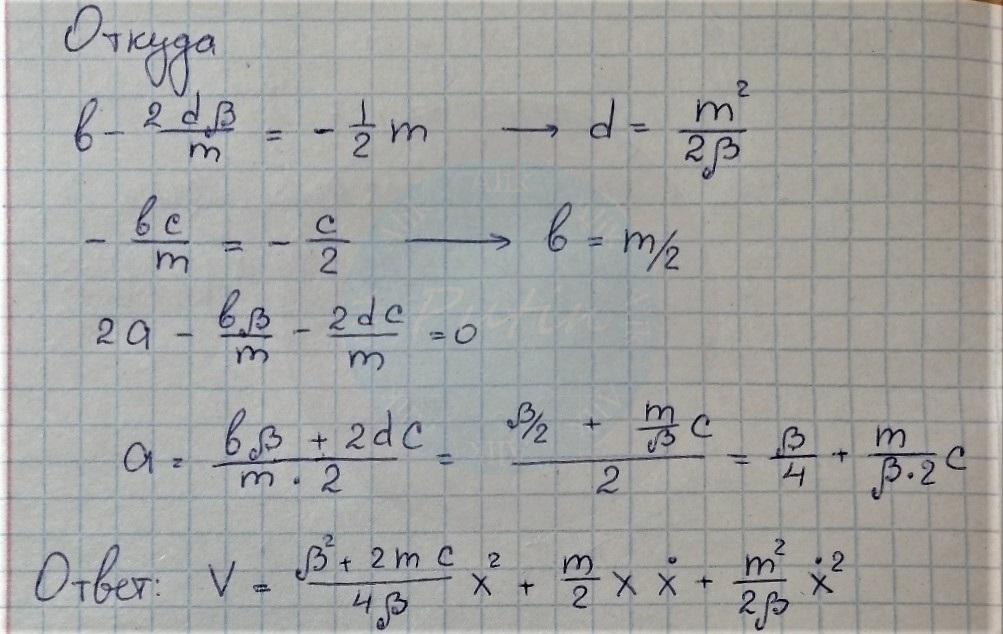 Откуда
в - 2dβ/m = - 1/2 m → d = m²/2β
- вc/m = - c/2 → в = m/2
2a - вβ/m - 2dc/m = 0
a = (вβ + 2dc)/(m · 2) = (β/2 + (m/β)c)/2 = β/4 + m/(β·2) c
Ответ: V = (β² + 2mc)/4β x² + m/2 x ẋ + m²/2β ẋ²